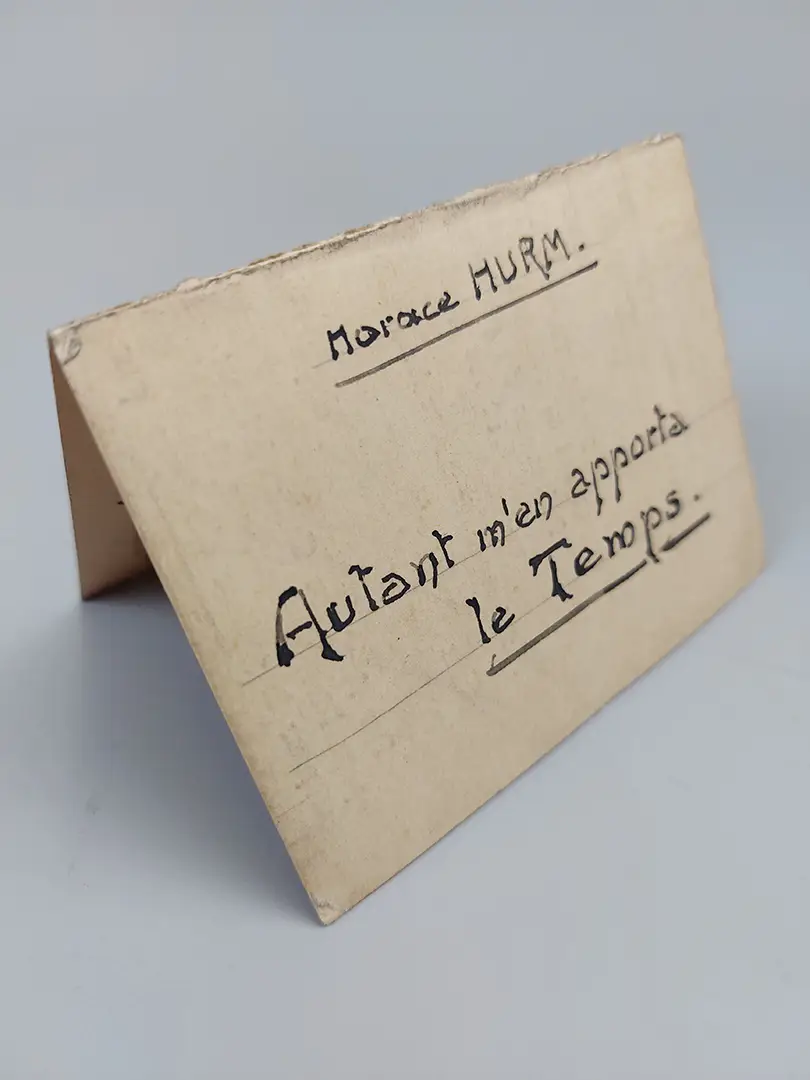 Horace HURM.
Autant m'en apporta
le Temps.